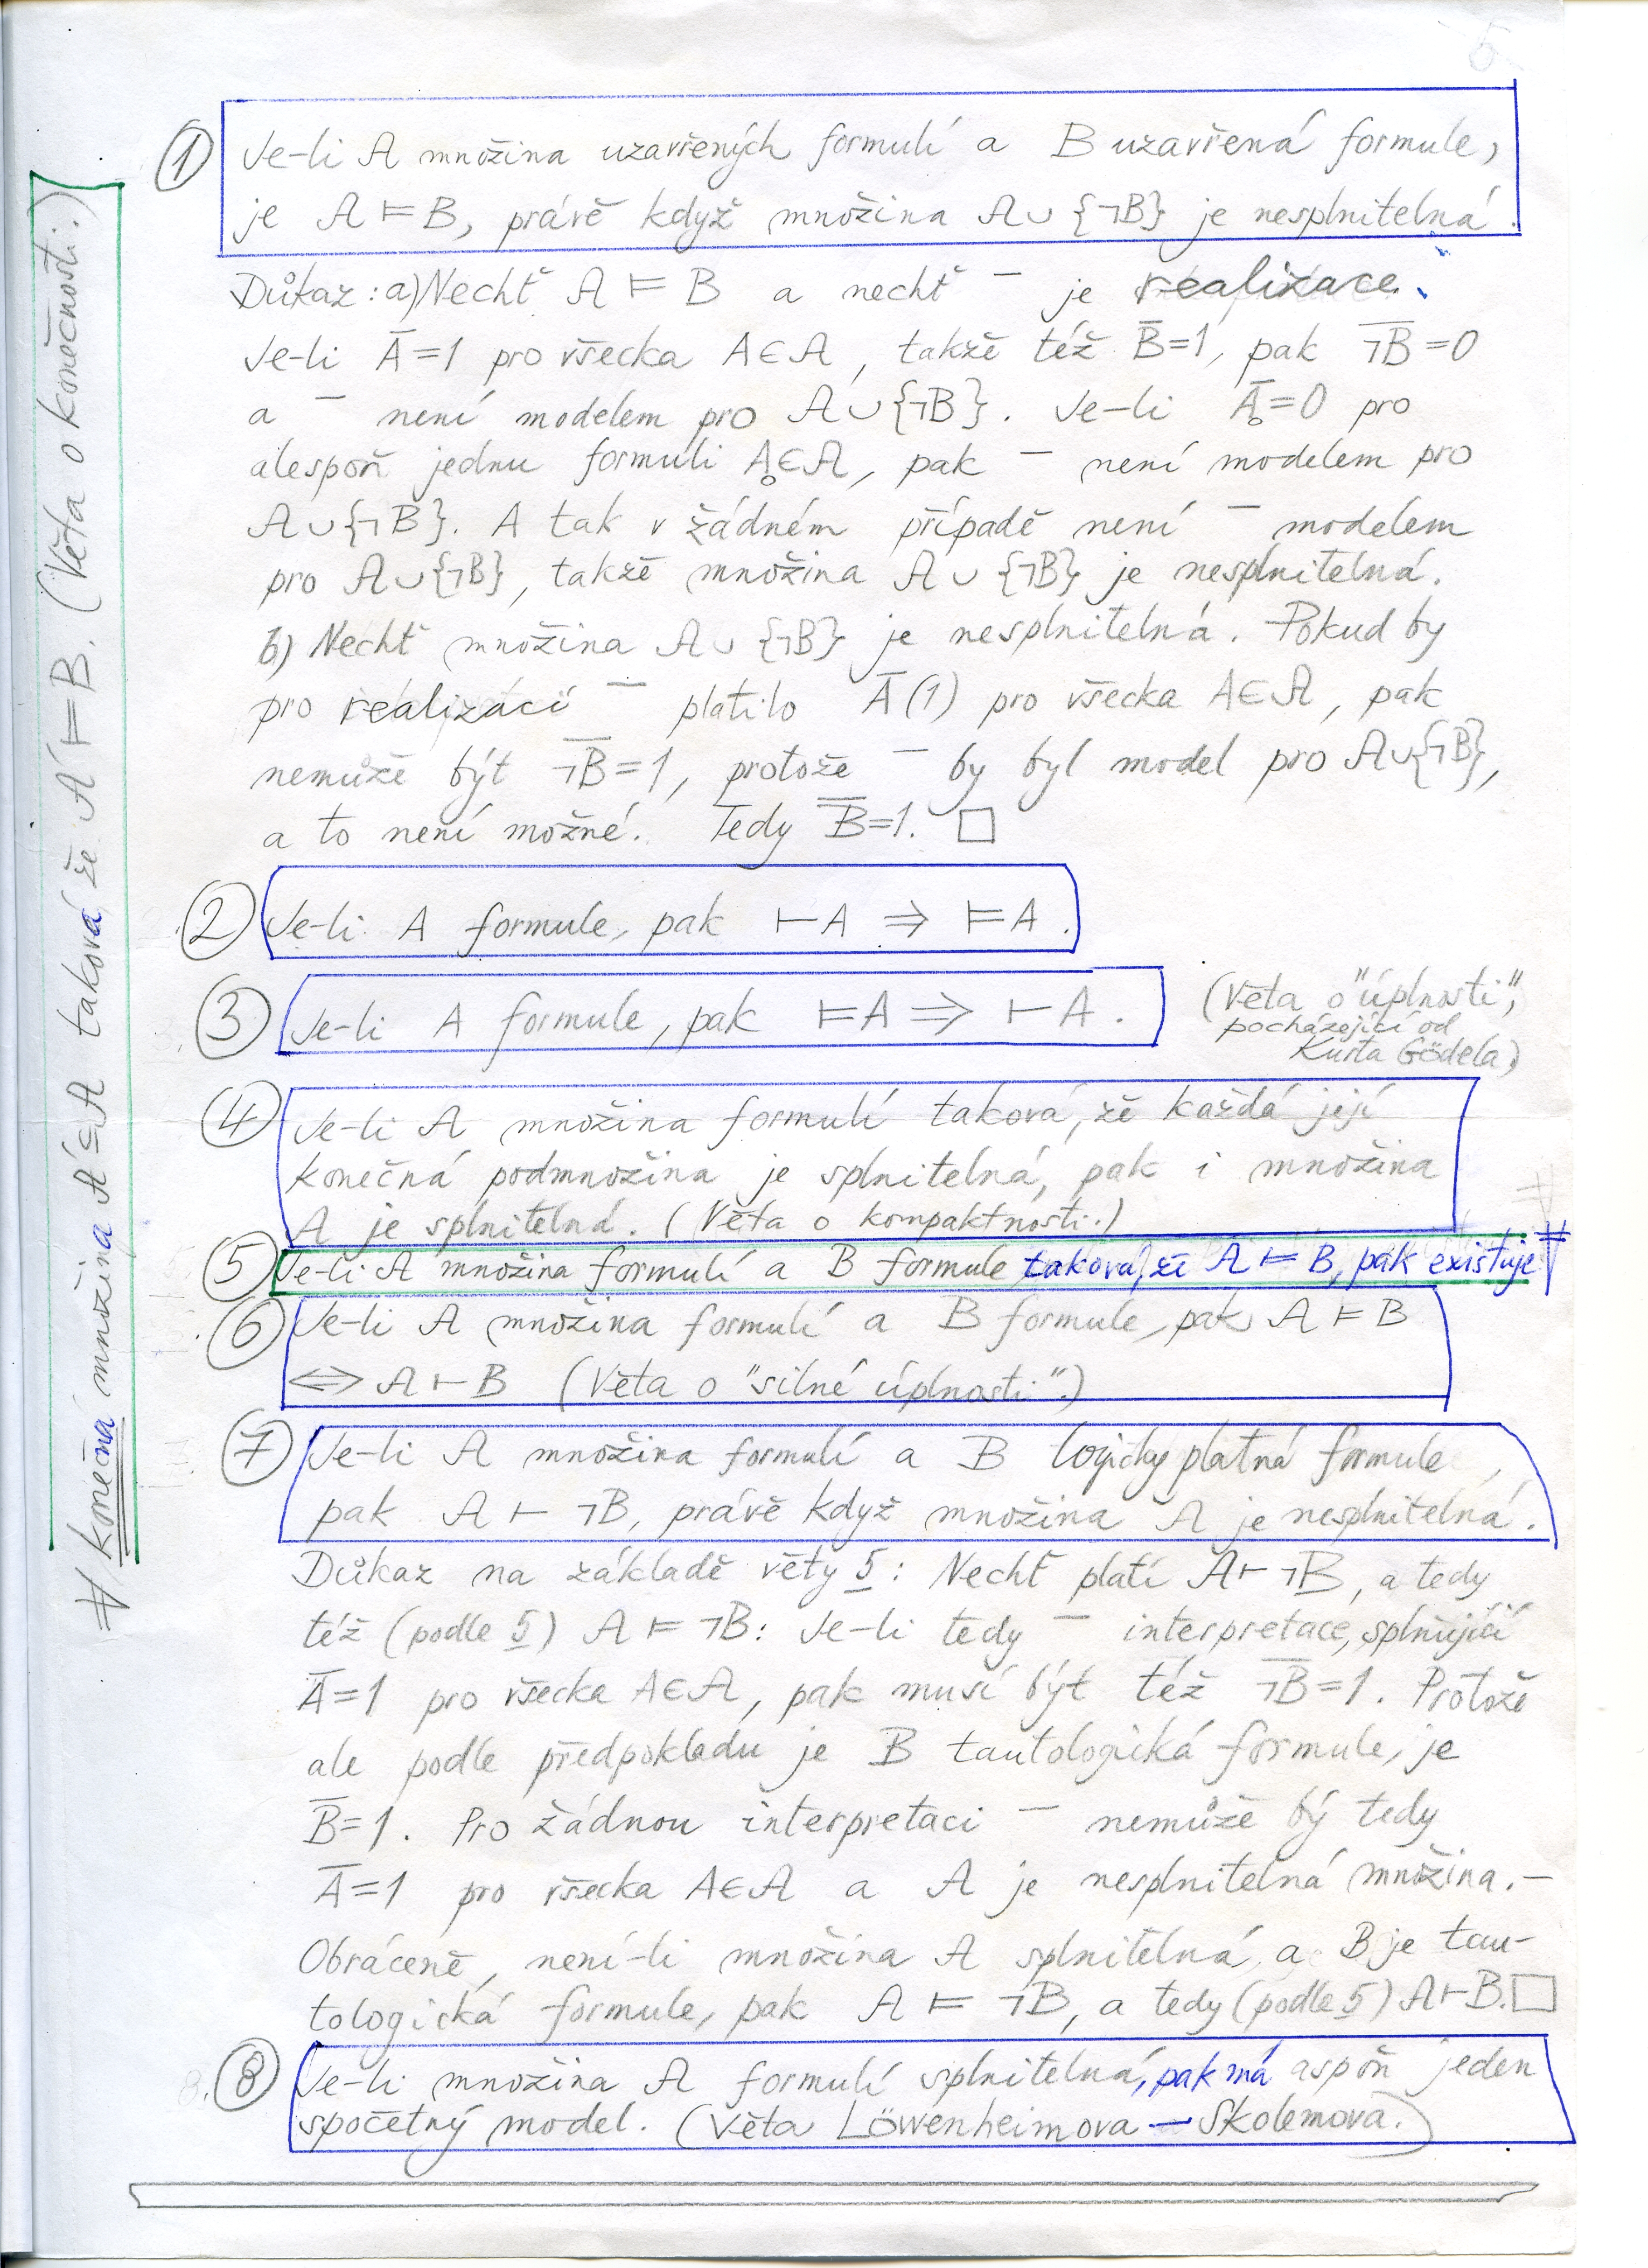 5
① Je-li 𝒜 množina uzavřených formulí a B uzavřená formule,
je 𝒜 ⊨ B, právě když množina 𝒜 ∪ {¬B} je nesplnitelná.
Důkaz: a) Nechť 𝒜 ⊨ B a nechť ‾ je realizace.
Je-li A̅=1 pro všecka A∈𝒜, takže též B̅=1, pak ¬B̅=0
a ‾ není modelem pro 𝒜∪{¬B}. Je-li A̅₀=0 pro
alespoň jednu formuli A₀∈𝒜, pak ‾ není modelem pro
𝒜∪{¬B}. A tak v žádném případě není ‾ modelem
pro 𝒜∪{¬B}, takže množina 𝒜 ∪ {¬B} je nesplnitelná.
b) Nechť množina 𝒜 ∪ {¬B} je nesplnitelná. Pokud by
pro realizaci ‾ platilo A̅(1) pro všecka A∈𝒜, pak
nemůže být ¬B̅=1, protože ‾ by byl model pro 𝒜∪{¬B},
a to není možné. Tedy B̅=1. □
② Je-li A formule, pak ⊢A ⇒ ⊨A.
③ Je-li A formule, pak ⊨A ⇒ ⊢A. (Věta o "úplnosti",
pocházející od
Kurta Gödela)
④ Je-li 𝒜 množina formulí taková, že každá její
konečná podmnožina je splnitelná, pak i množina
𝒜 je splnitelná. (Věta o kompaktnosti.)
⑤ Je-li 𝒜 množina formulí a B formule taková, že 𝒜 ⊨ B, pak existuje #
# konečná množina 𝒜'⊆𝒜 taková, že 𝒜' ⊨ B. (Věta o konečnosti.)
⑥ Je-li 𝒜 množina formulí a B formule, pak 𝒜 ⊨ B
⇔ 𝒜 ⊢ B (Věta o "silné úplnosti".)
⑦ Je-li 𝒜 množina formulí a B logicky platná formule,
pak 𝒜 ⊢ ¬B, právě když množina 𝒜 je nesplnitelná.
Důkaz na základě věty 5: Nechť platí 𝒜⊢¬B, a tedy
též (podle 5) 𝒜 ⊨ ¬B: Je-li tedy ‾ interpretace, splňující
A̅=1 pro všecka A∈𝒜, pak musí být též ¬B̅=1. Protože
ale podle předpokladu je B tautologická formule, je
B̅=1. Pro žádnou interpretaci ‾ nemůže bý tedy
A̅=1 pro všecka A∈𝒜 a 𝒜 je nesplnitelná množina. –
Obráceně, není-li množina 𝒜 splnitelná a B je tau-
tologická formule, pak 𝒜 ⊨ ¬B, a tedy (podle 5) 𝒜⊢B. □
8. ⑧ Je-li množina 𝒜 formulí splnitelná, pak má aspoň jeden
spočetný model. (Věta Löwenheimova – Skolemova.)